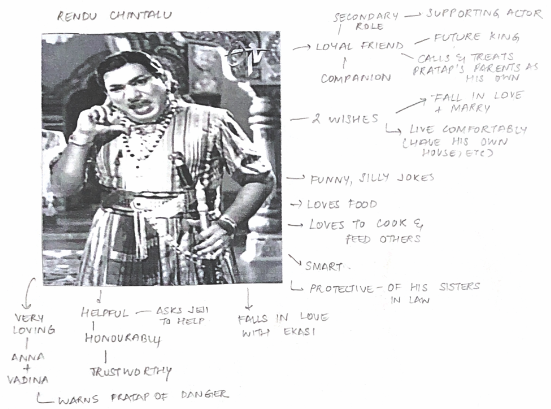 RENDU CHINTALU
SECONDARY ROLE
SUPPORTING ACTOR
LOYAL FRIEND
FUTURE KING
CALLS & TREATS PRATAP'S PARENTS AS HIS OWN
COMPANION
2 WISHES
FALL IN LOVE + MARRY
LIVE COMFORTABLY (HAVE HIS OWN HOUSE, ETC)
FUNNY, SILLY JOKES
LOVES FOOD
LOVES TO COOK & FEED OTHERS
SMART.
PROTECTIVE - OF HIS SISTERS IN LAW
VERY LOVING
ANNA + VADINA
HELPFUL
ASKS JEJI TO HELP
HONOURABLY
TRUSTWORTHY
WARNS PRATAP OF DANGER
FALLS IN LOVE WITH EKASI